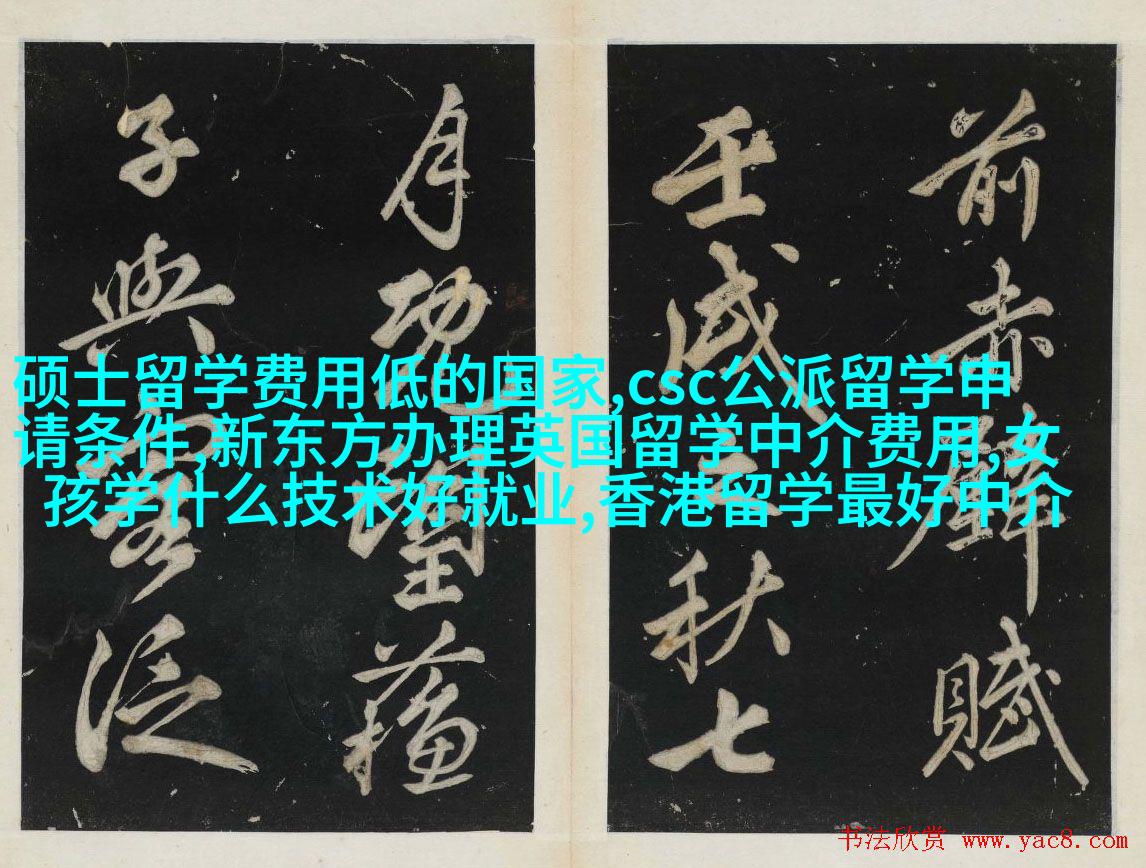 前赤壁賦
壬戌之秋七
月既望蘓
子與客泛
硕士留学费用低的国家,csc公派留学申
请条件,新东方办理英国留学中介费用,女
孩学什么技术好就业,香港留学最好中介
书法欣赏 www.yac8.com